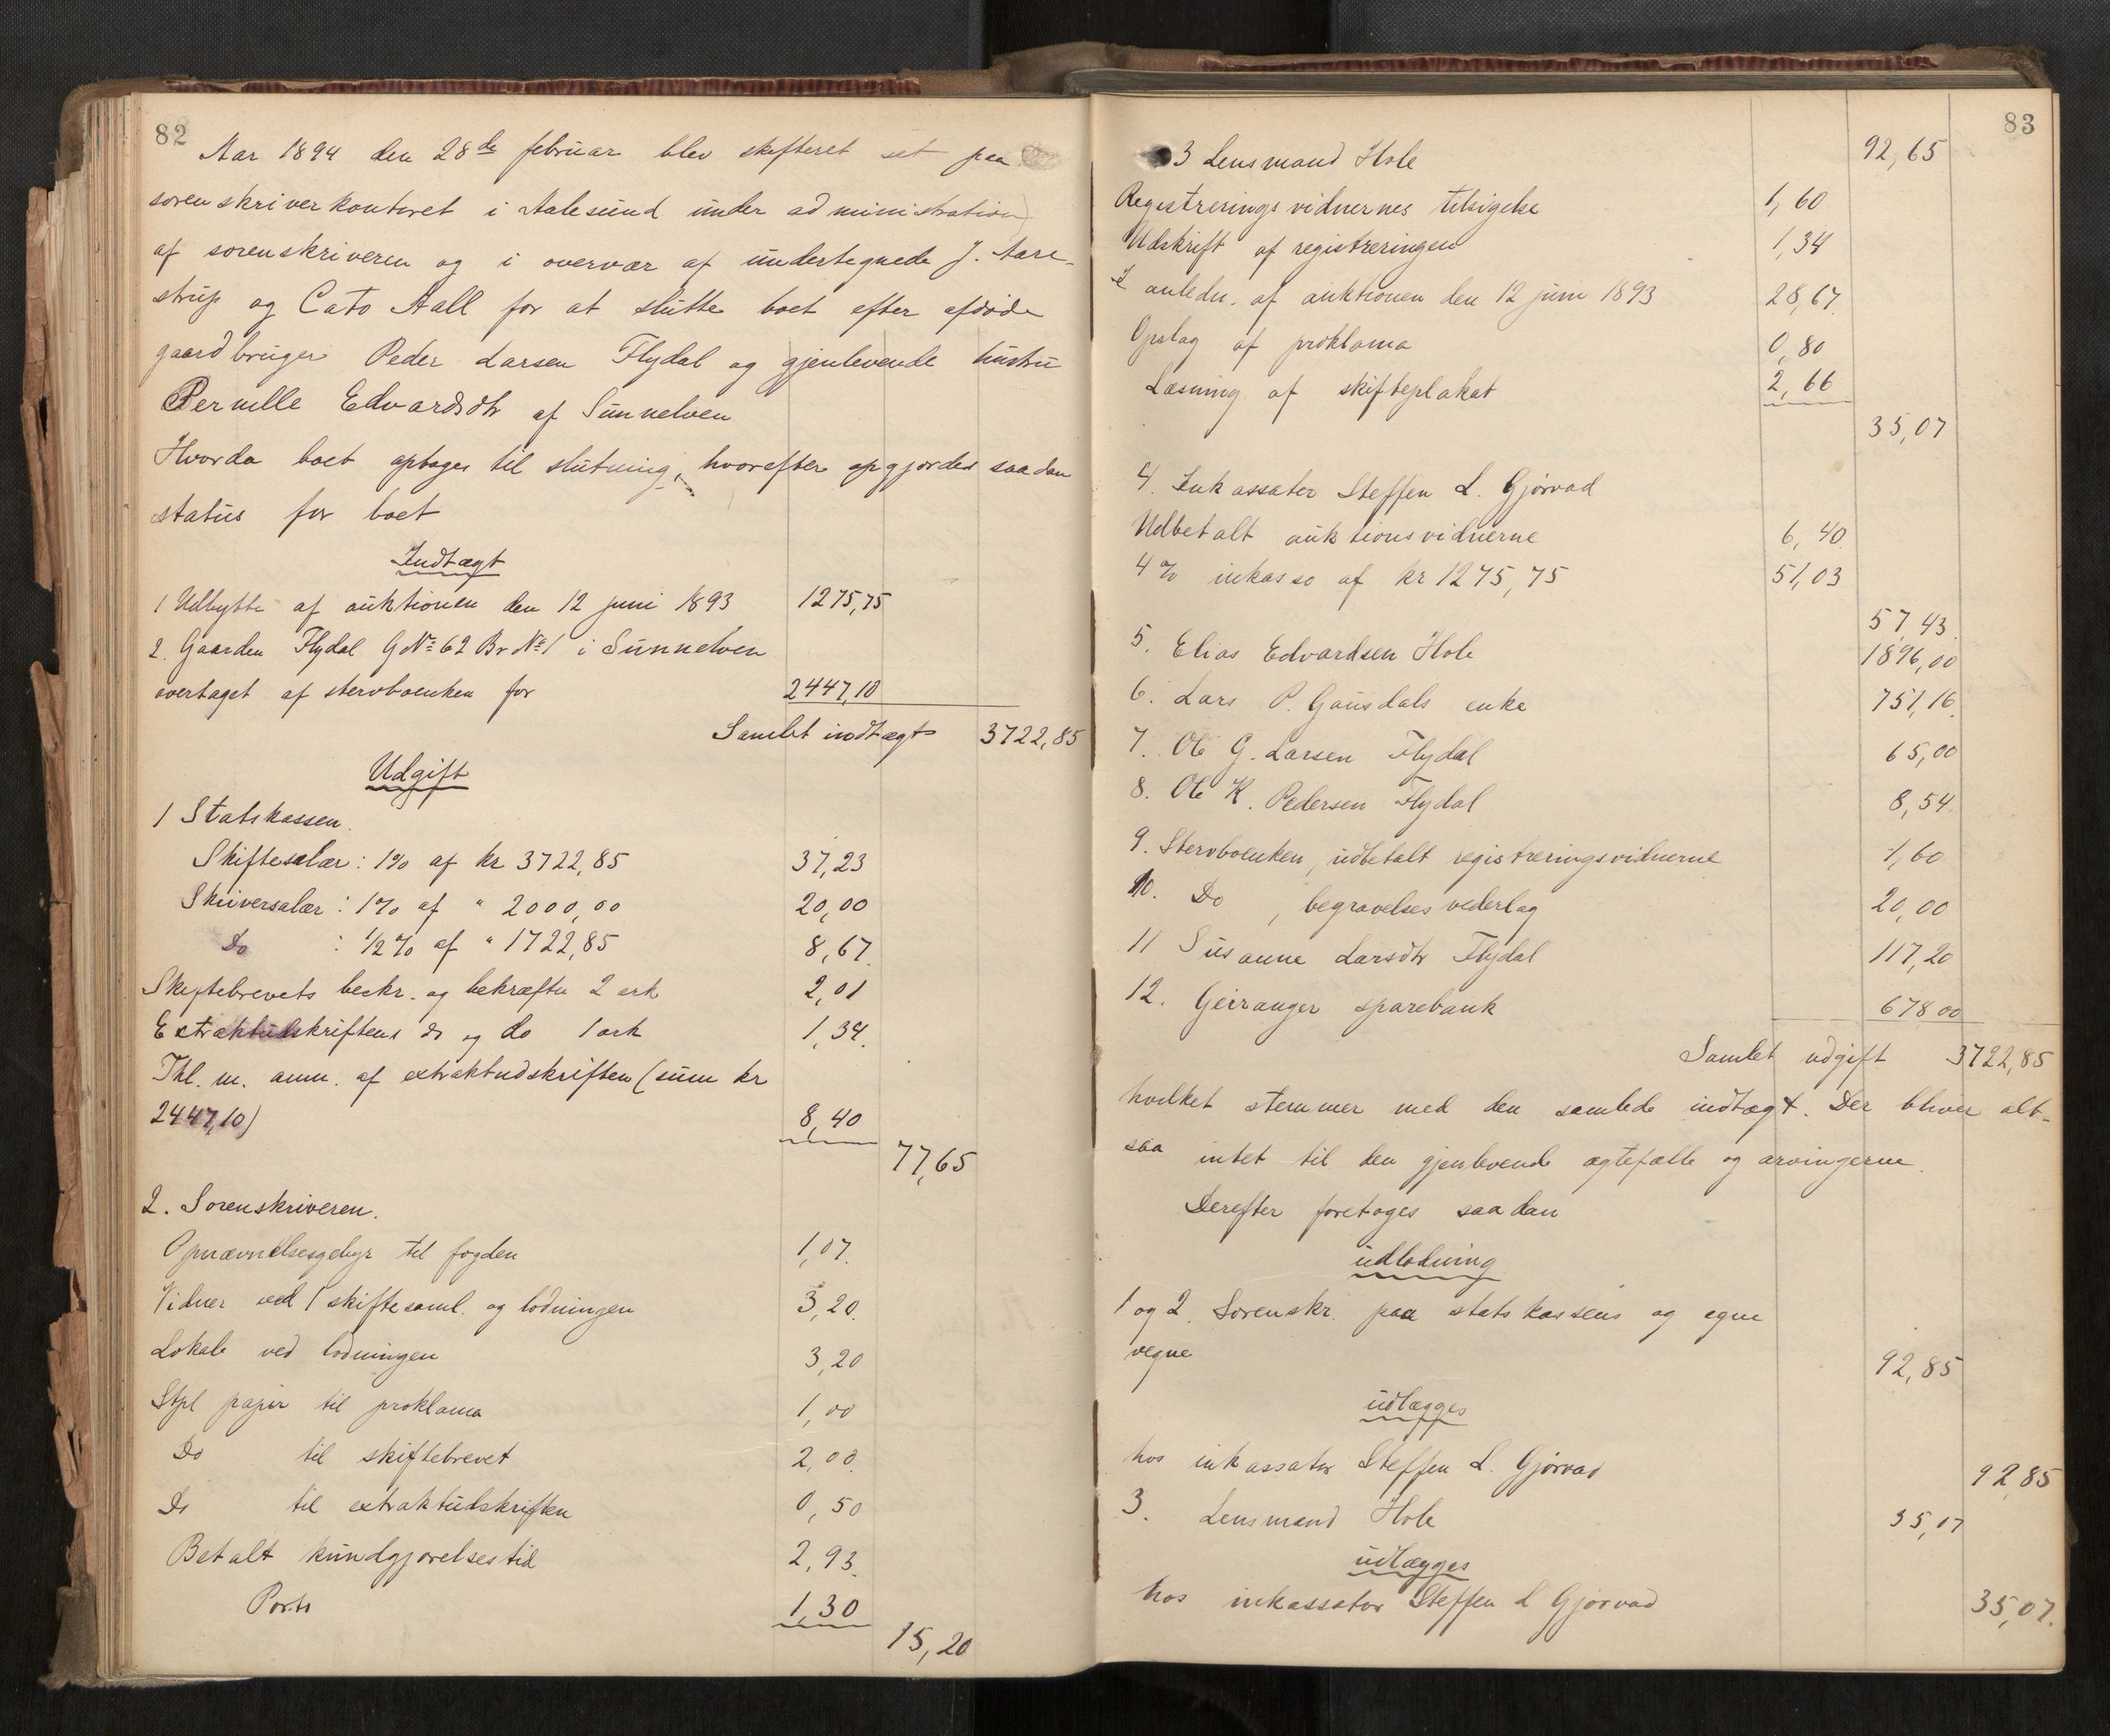 82
Aar 1894 den 28de februar blev skifteret sat paa
sorenskriverkontoret i Aalesund under administration
af sorenskriveren og i overvær af undertegnede J. Aare-
strup og Cato Aall for at slutte boet efter afdøde
gaardbruger Peder Larsen Flydal og gjenlevende hustru
Pernille Edvardsdtr af Sunnelven
Hvorda boet optoges til slutning, hvorefter opgjordes saadan
status for boet
Indtægt
1 Udbytte af auktionen den 12 juni 1893 1275,75
2. Gaarden Flydal GNo 62 Br No 1 i Sunnelven
overtaget af stervboenken for 2447,10
Samlet indtægt 3722,85
Udgift
1 Statskassen.
Skiftesalær: 1% af kr 3722,85 37,23
Skriversalær: 1% af " 2000,00 20,00
Do : 1/2% af " 1722,85 8,67.
Skiftebrevets beskr. og bekræfte 2 ark 2,01
Extraktudskriftens do og do 1 ark 1,34.
Thl. m. anm. af extraktudskriften (sum kr
2447,10) 8,40
77,65
2. Sorenskriveren.
Opnævnelsesgebyr til fogden 1,07.
Vidner ved 1 skiftesaml. og lodningen 3,20.
Lokale ved lodningen 3,20
Stpl papir til proklama 1,00
Do til skiftebrevet 2,00.
Do til extraktudskriften 0,50
Betalt kundgjørelsestid 2,93.
Porto 1,30
15,20
83
92,65
3 Lensmand Hole
Registreringsvidnernes tilsigelse 1,60
Udskrift af registreringen 1,34
I anledn. af auktionen den 12 juni 1893 28,67.
Opslag af proklama 0,80
Læsning af skifteplakat 2,66
35,07
4. Inkassator Steffen L. Gjørvad
Udbetalt auktionsvidnerne 6,40.
4% inkasso af kr 1275,75 51,03
57,43.
5. Elias Edvardsen Hole 1896,00
6. Lars P. Gausdals enke 751,16.
7. Ole G. Larsen Flydal 65,00
8. Ole K. Pedersen Flydal 8,54.
9. Stervboenken, udbetalt registreringsvidnerne 1,60
10. Do , begravelsesvederlag 20,00
11 Susanne Larsdtr Flydal 117,20
12. Geiranger sparebank 678 00
Samlet udgift 3722,85
hvilket stemmer med den samlede indtægt. Der bliver alt-
saa intet til den gjenlevende ægtefælle og arvingerne.
Derefter foretoges saadan
udlodning
1 og 2. Sorenskr. paa statskassens og egne
vegne 92,85
udlægges
hos inkassator Steffen L. Gjørvad 92,85
3. Lensmand Hole 35,07
udlægges
hos inkassator Steffen L Gjørvad 35,07.